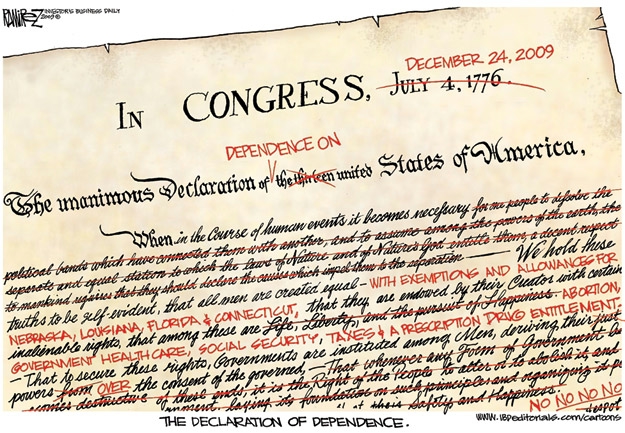 RAMIREZ INVESTOR'S BUSINESS DAILY
2009©
DECEMBER 24, 2009
IN CONGRESS, JULY 4, 1776.
DEPENDENCE ON
The unanimous Declaration of the thirteen united States of America,
When in the Course of human events it becomes necessary for one people to dissolve the
political bands which have connected them with another, and to assume among the powers of the earth, the
separate and equal station to which the laws of Nature and of Nature's God entitle them, a decent respect
to mankind requires that they should declare the causes which impel them to the separation — We hold these
truths to be self-evident, that all men are created equal - WITH EXEMPTIONS AND ALLOWANCES FOR
NEBRASKA, LOUISIANA, FLORIDA & CONNECTICUT, that they are endowed by their Creator with certain
inalienable rights, that among these are Life, Liberty, and the pursuit of Happiness. ABORTION,
GOVERNMENT HEALTHCARE, SOCIAL SECURITY, TAXES & A PRESCRIPTION DRUG ENTITLEMENT,
— That to secure these rights, Governments are instituted among Men, deriving their just
powers from OVER the consent of the governed, — That whenever any Form of Government be
comes destructive of these ends, it is the Right of the People to alter or to abolish it, and
laying its foundation on such principles and organizing
their Safety and Happiness.
NO NO NO NO
despot
www.IBDeditorials.com/cartoons
THE DECLARATION OF DEPENDENCE.